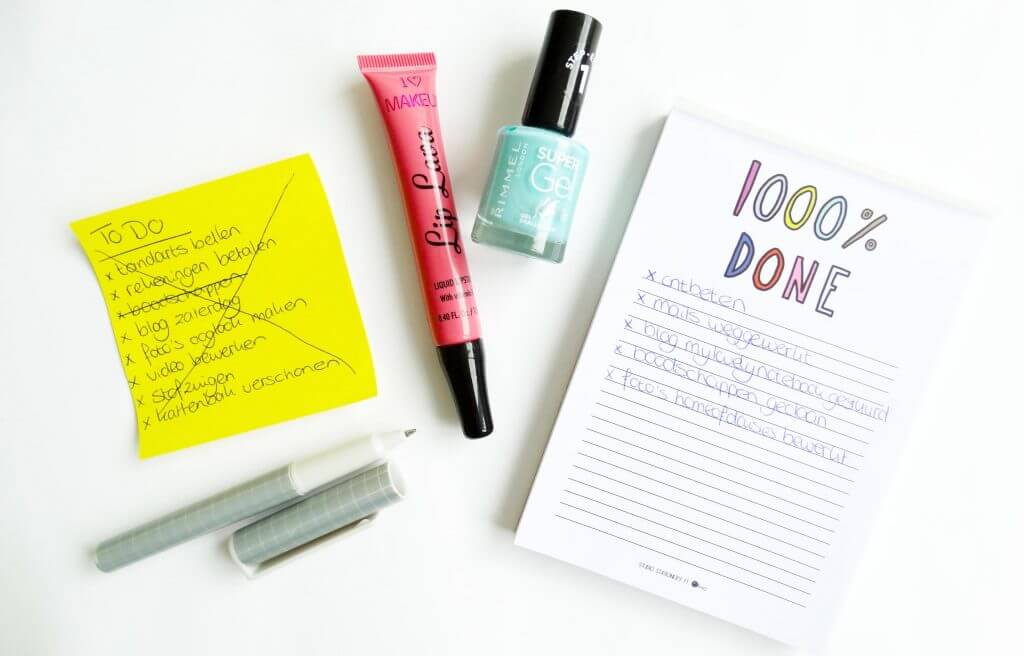 TO DO
x tandarts bellen
x rekeningen betalen
x boodschappen
x blog zaterdag
x foto's ooglook maken
x video bewerken
x stofzuigen
x kattenbak verschonen
I ♡
MAKEU
Lip Lava
LIQUID LIPST
With vitamin
0.40 FL. Oz. /
STEP
1
RIMMEL
LONDON
SUPER
Gel
1000%
DONE
x ontbeten
x mails weggewerkt
x blog mylovelynotebook gestuurd
x boodschappen gedaan
x foto's homeofdaisies bewerkt
STUDIO STATIONERY